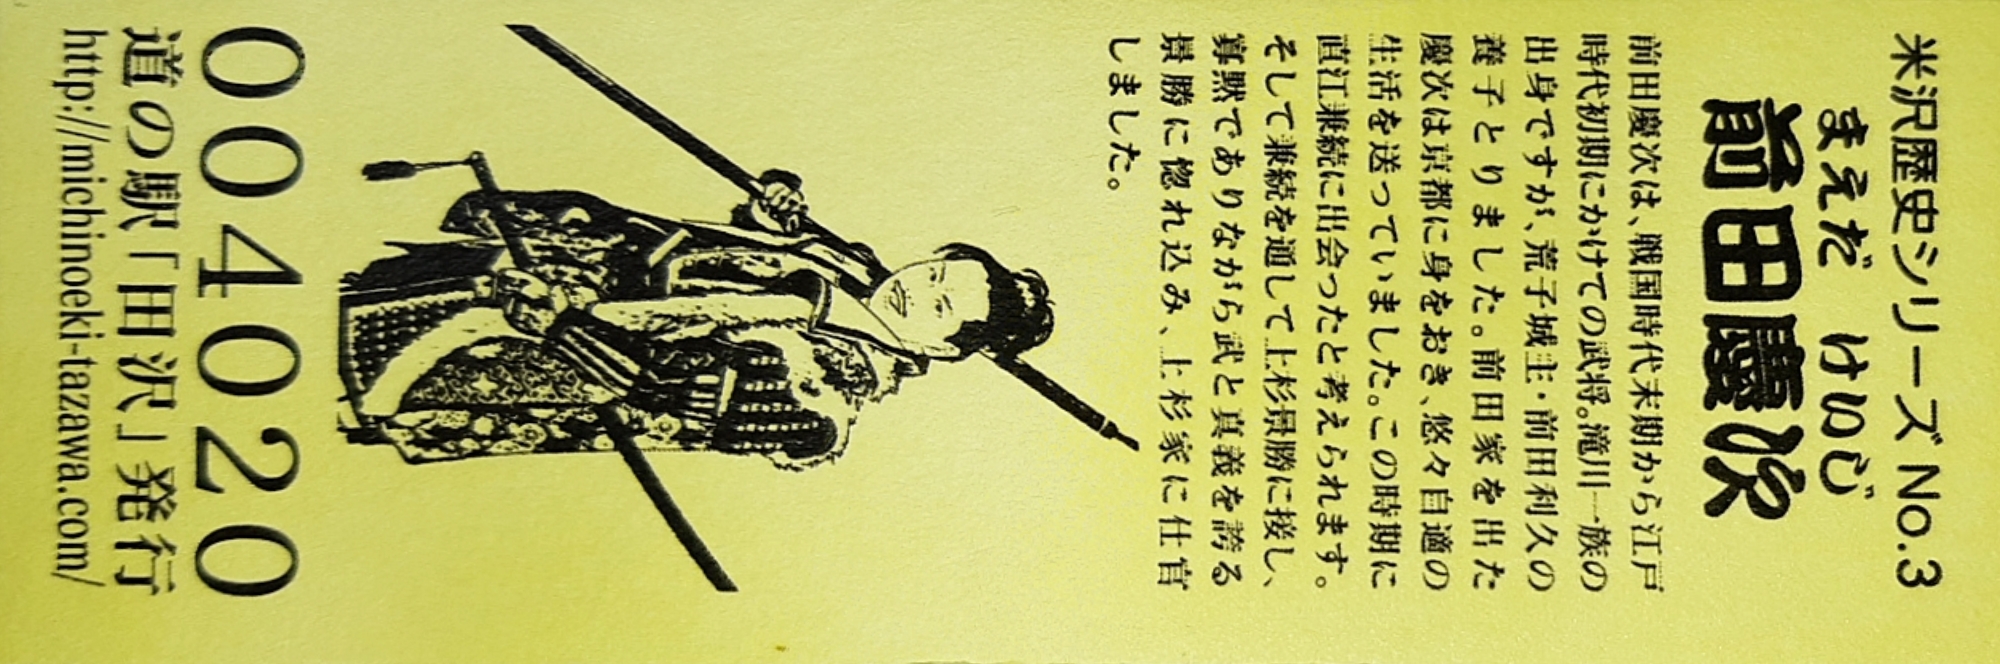 米沢歴史シリーズ No.3
まえだ けいじ
前田慶次
前田慶次は、戦国時代末期から江戸
時代初期にかけての武将。滝川一族の
出身ですが、荒子城主・前田利久の
養子とりました。前田家を出た
慶次は京都に身をおき、悠々自適の
生活を送っていました。この時期に
直江兼続に出会ったと考えられます。
そして兼続を通して上杉景勝に接し、
寡黙でありながら武と真義を誇る
景勝に惚れ込み、上杉家に仕官
しました。
004020
道の駅「田沢」発行
http://michinoeki-tazawa.com/